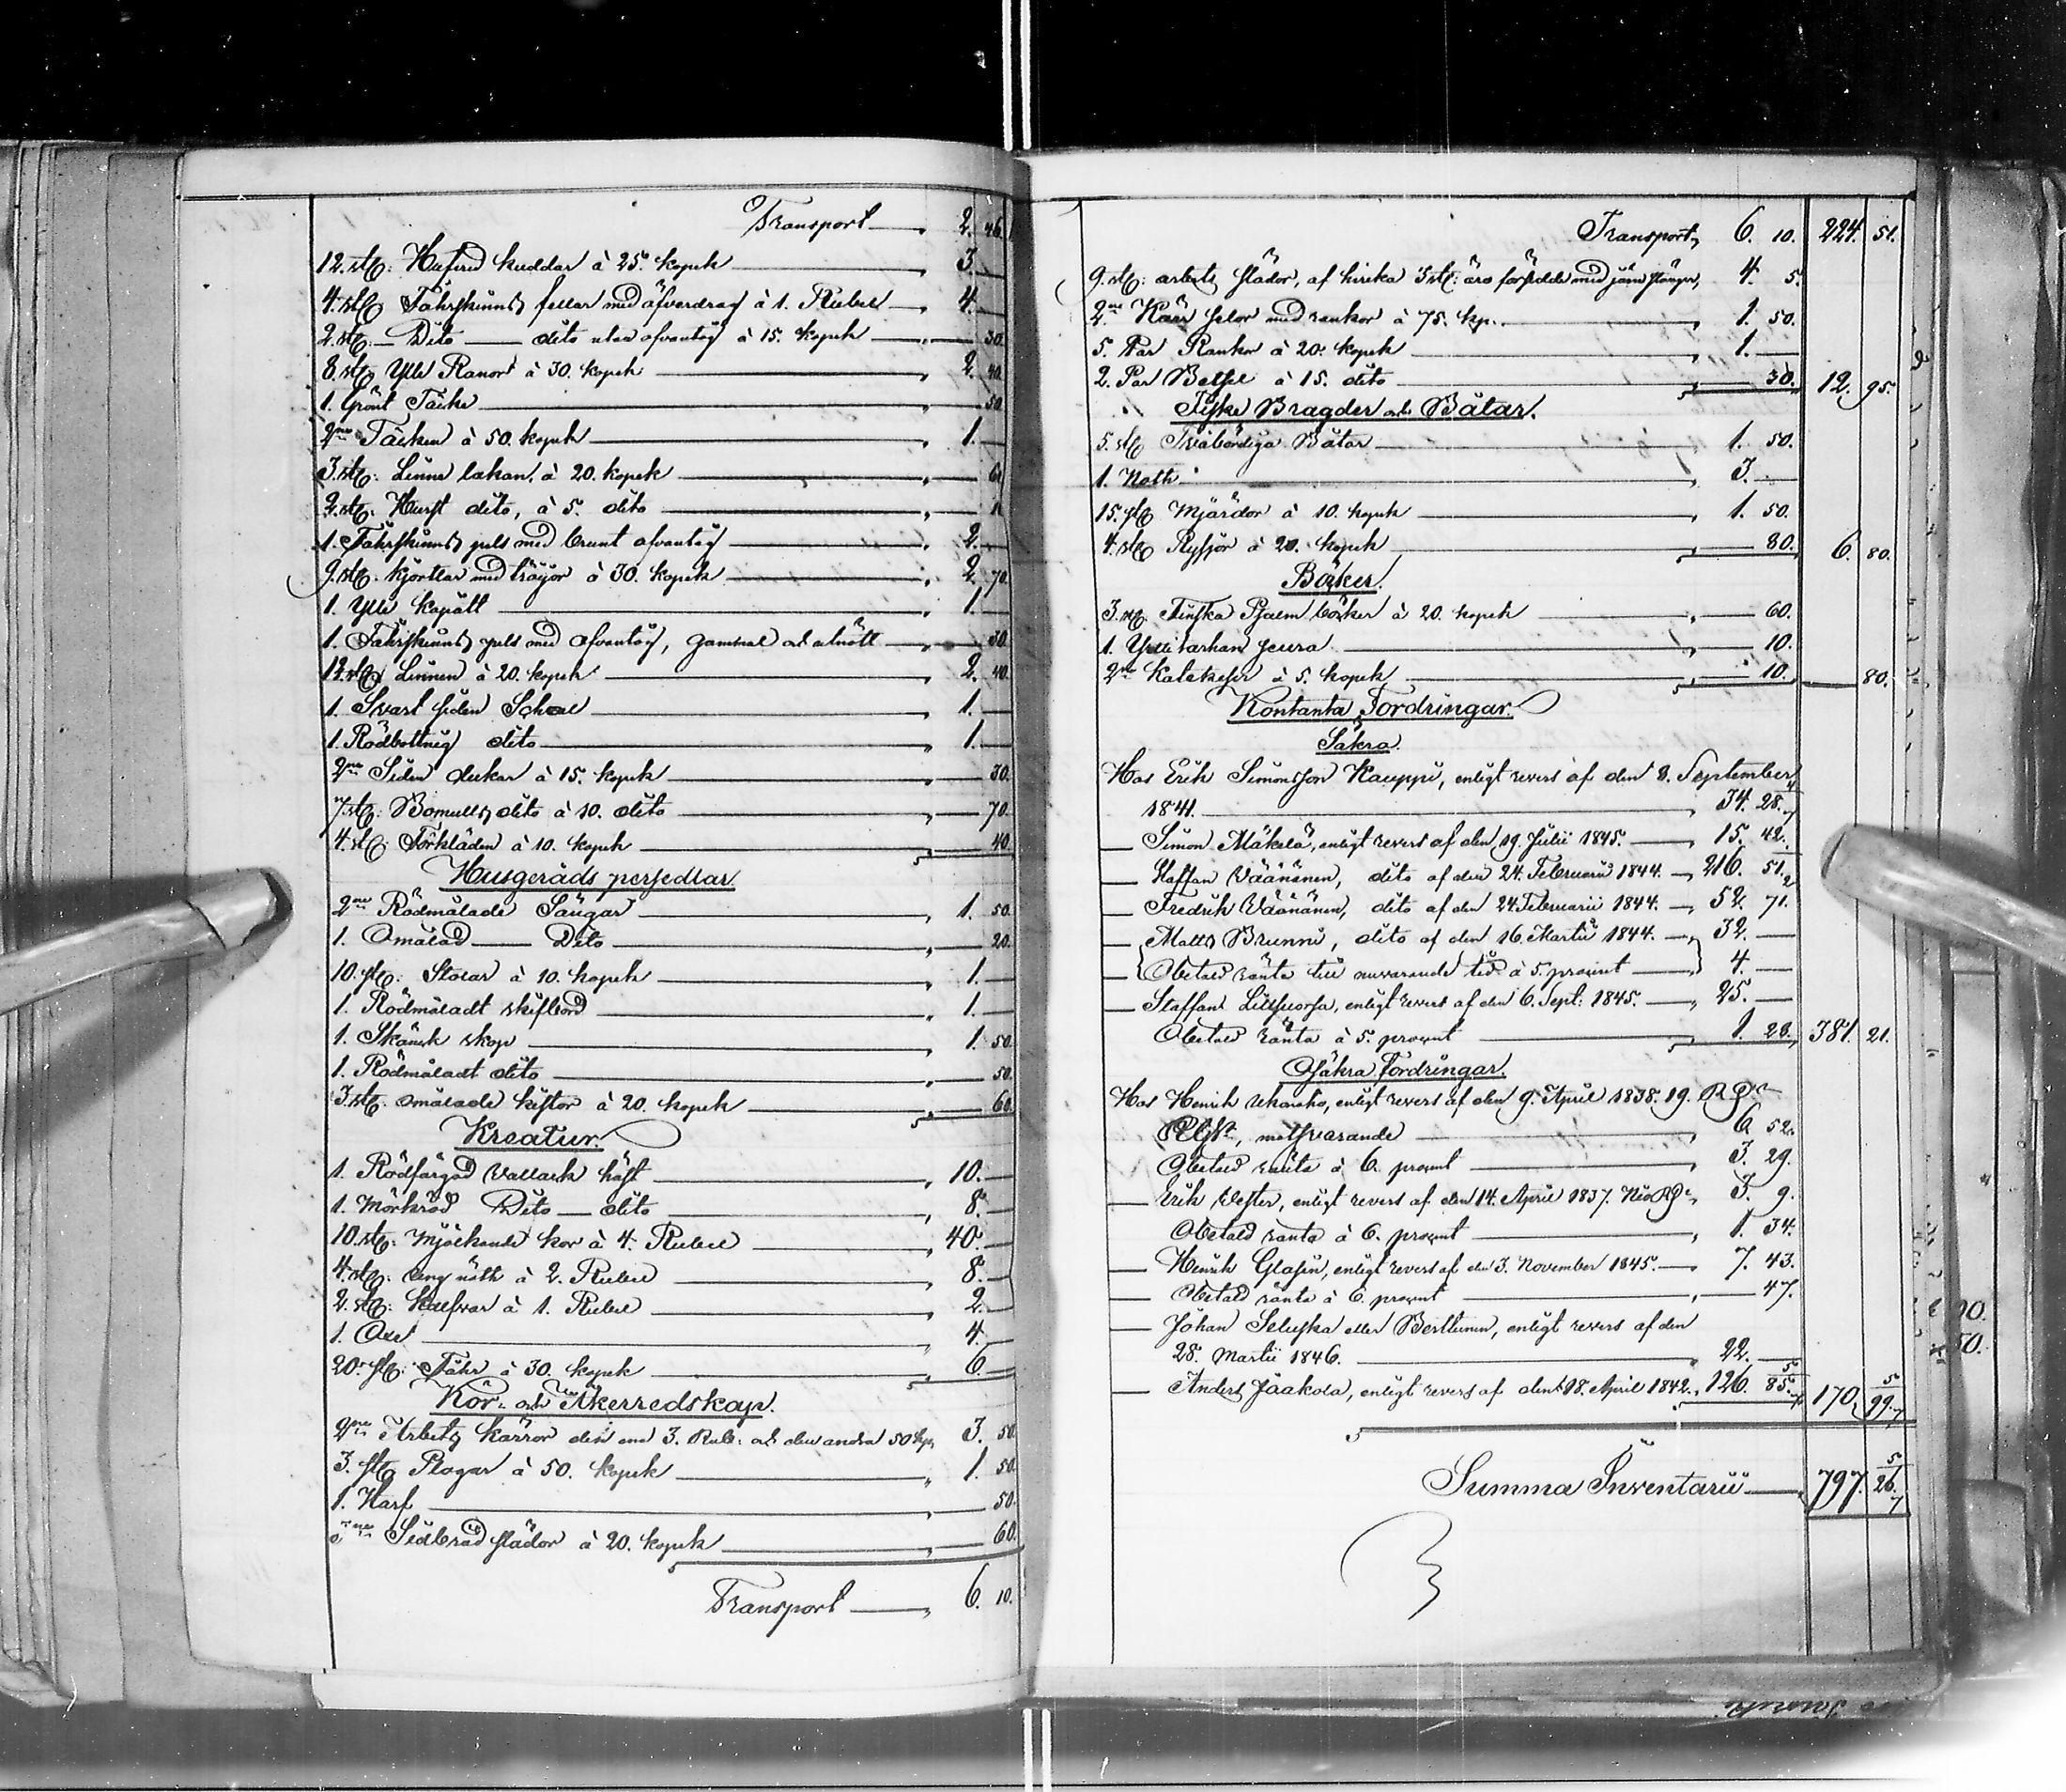 Transport 2. 46.
12. stÿ: Hufvud kuddar à 25. kopek 3.
4. stÿ Fåhrskinns fellar med öfverdrag à 1. Rubel 4.
2. stÿ: Dito dito utan öfvantÿg à 15. kopek 30.
8. stÿ Ylle Ranor à 30. kopek 2. 40.
1. Grönt Täcke 50.
2ne Täcken à 50. kopek 1.
3. stÿ: Linne lakan, à 20. kopek 60
2. stÿ. Hurst dito, à 5. dito 10
1. Fåhrskinns pels med brunt ofvantÿg 2.
9. stÿ: kjortlar med tröÿor à 30. kopek 2. 70.
1. Ylle kapått 1.
1. Fåhrskinns pels med ofvantÿg, gammal och utnött 30.
12. stÿ Linnen à 20. kopek 2. 40.
1. Svart siden Schal 1.
1. Rödbottnig dito 1.
2ne Siden dukar à 15. kopek 30.
7. stÿ: Bomulls dito à 10. dito 70.
4. stÿ: Förkläden à 10. kopek 40.
Husgeråds persedlar
2ne Rödmålade Sängar 1. 50.
1. Omålad Dito 20.
10. stÿ: Stolar à 10. kopek 1.
1. Rödmåladt skifbord 1.
1. Skänk skåp 1. 50.
1. Rödmåladt dito 50.
3. stÿ omålade kistor à 20. kopek 60.
Kreatur.
1. Rödfärgad Vallack häst 10.
1. Mörkröd Dito dito 8.
10. stÿ: Mjölkande kor à 4. Rubel 40.
4. stÿ: ung nöth à 2. Rubel 8.
2. stÿ: Kalfvar à 1. Rubel 2.
1. Oxe 4.
20. stÿ: Fåhr à 30. kopek 6.
Kör- och Åkerredskap.
2ne Arbets kärror den ena 3. Rub: och den andra 50 kop, 3. 50.
3. stÿ Plogar à 50. kopek 1. 50.
1. Harf 50.
3ne släder à 20. kopek 60.
Transport 6. 10.
Transport, 6. 10. 224. 51.
9. stÿ: arbets slädor, af hvilka 3 stÿ: äro försedde med järn stänger, 4. 5.
2ne Kärr selor med rankor à 75. kp. 1. 50.
5. Par Rankor à 20. kopek 1.
2. Par Betsel à 15. dito 30. 12. 95.
Fiske Bragder och Båtar.
5. stÿ Tvåbördiga Båtar 1. 50.
1. Noth 3.
15. stÿ Mjärdor à 10. kopek 1. 50.
4. stÿ Ryssjor à 20. kopek 80. 6. 80.
Böcker.
3. stÿ Finska Psalm böcker à 20. kopek 60.
1. Yrttitarhan seura 10.
2ne Katekeser à 5. kopek 10. 80.
Kontanta Fordringar.
Säkra.
Hos Erik Simonsson Kauppi, enligt revers af den 8. September
1841. 34. 28. 4/7
Simon Mäkelä, enligt revers af den 19. Julii 1845. 15. 42.
Staffan Väänänen, dito af den 24. Februarii 1844. 216. 51.
Fredrik Väänänen, dito af den 24. Februarii 1844. 52. 71.
Matts Brunni, dito af den 16. Martii 1844. 32.
Obetald ränta till nuvarande tid à 5. procent 4.
Staffan, enligt revers af den 6. Sept: 1845. 25.
Obetald ränta à 5. procent 1. 28. 381. 21.
Osäkra Fordringar.
Hos Henrik Ukonaho, enligt revers af den 9. April 1838. 19. R
motsvarande 6. 52.
Obetald ränta à 6. procent 3. 29.
Erik Vester, enligt revers af den 14. April 1837. Nio 3. 9.
Obetald ränta à 6. procent 1. 34.
Henrik Glasin, enligt revers af den 3. November 1845. 7. 43.
Obetald ränta à 6. procent 47.
Johan eller Berttunen, enligt revers af den
28. Martii 1846. 22.
Anders Jaakola, enligt revers af den 18. April 1842. 126. 85. 5/7 170. 99. 5/7
Summa Inventarii 797. 26. 5/7